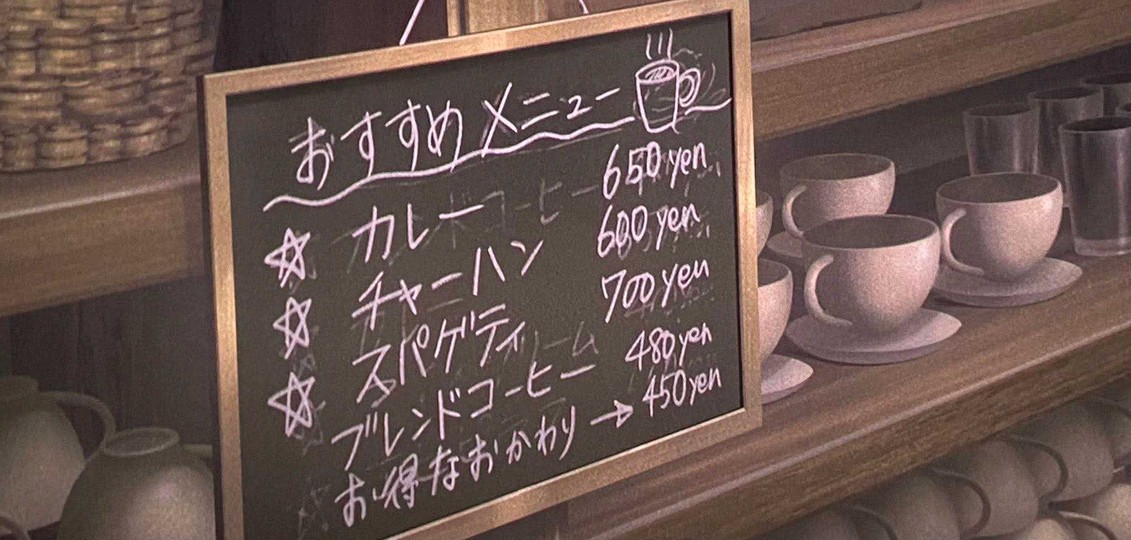 おすすめメニュー
☆ カレー 650yen
☆ チャーハン 600yen
☆ スパゲティ 700yen
ブレンドコーヒー 480yen
お得なおかわり → 450yen